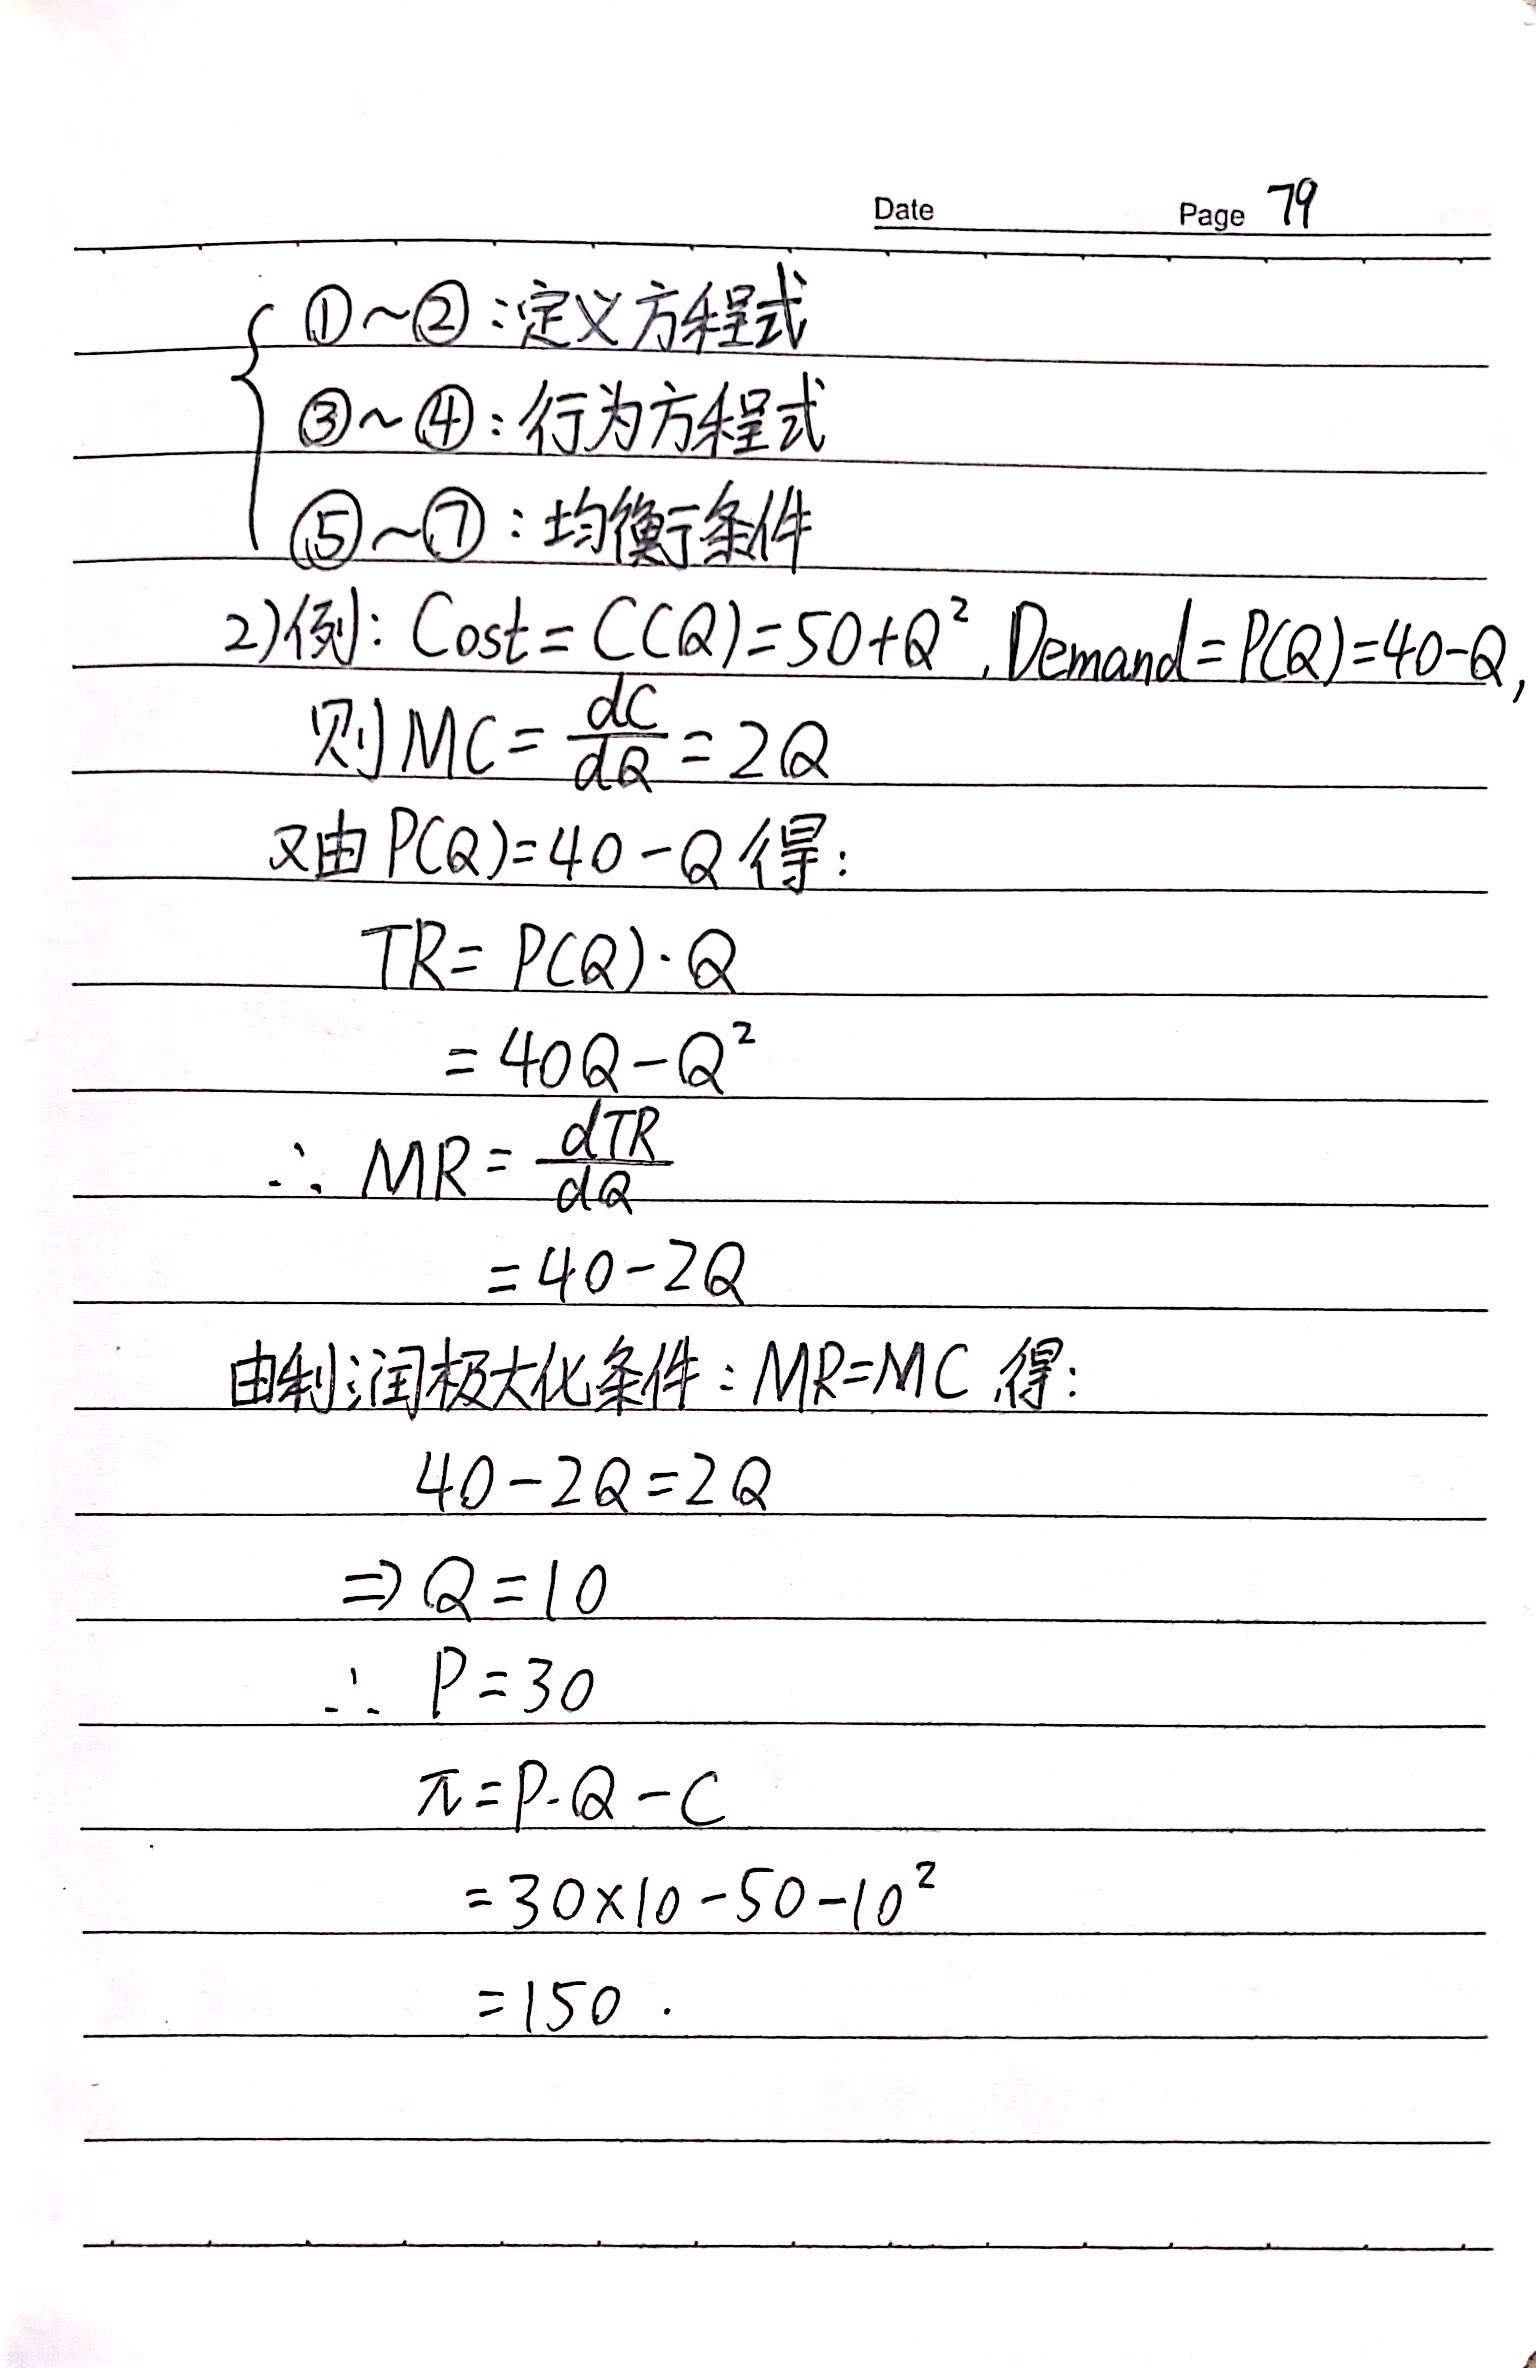 Date Page 79
①~②:定义方程式
③~④:行为方程式
⑤~⑦:均衡条件
2)例: Cost=C(Q)=50+Q², Demand=P(Q)=40-Q,
则MC=dC/dQ=2Q
又由P(Q)=40-Q得:
TR=P(Q)·Q
=40Q-Q²
∴ MR=dTR/dQ
=40-2Q
由利润极大化条件:MR=MC 得:
40-2Q=2Q
⇒Q=10
∴ P=30
π=P·Q-C
=30×10-50-10²
=150.